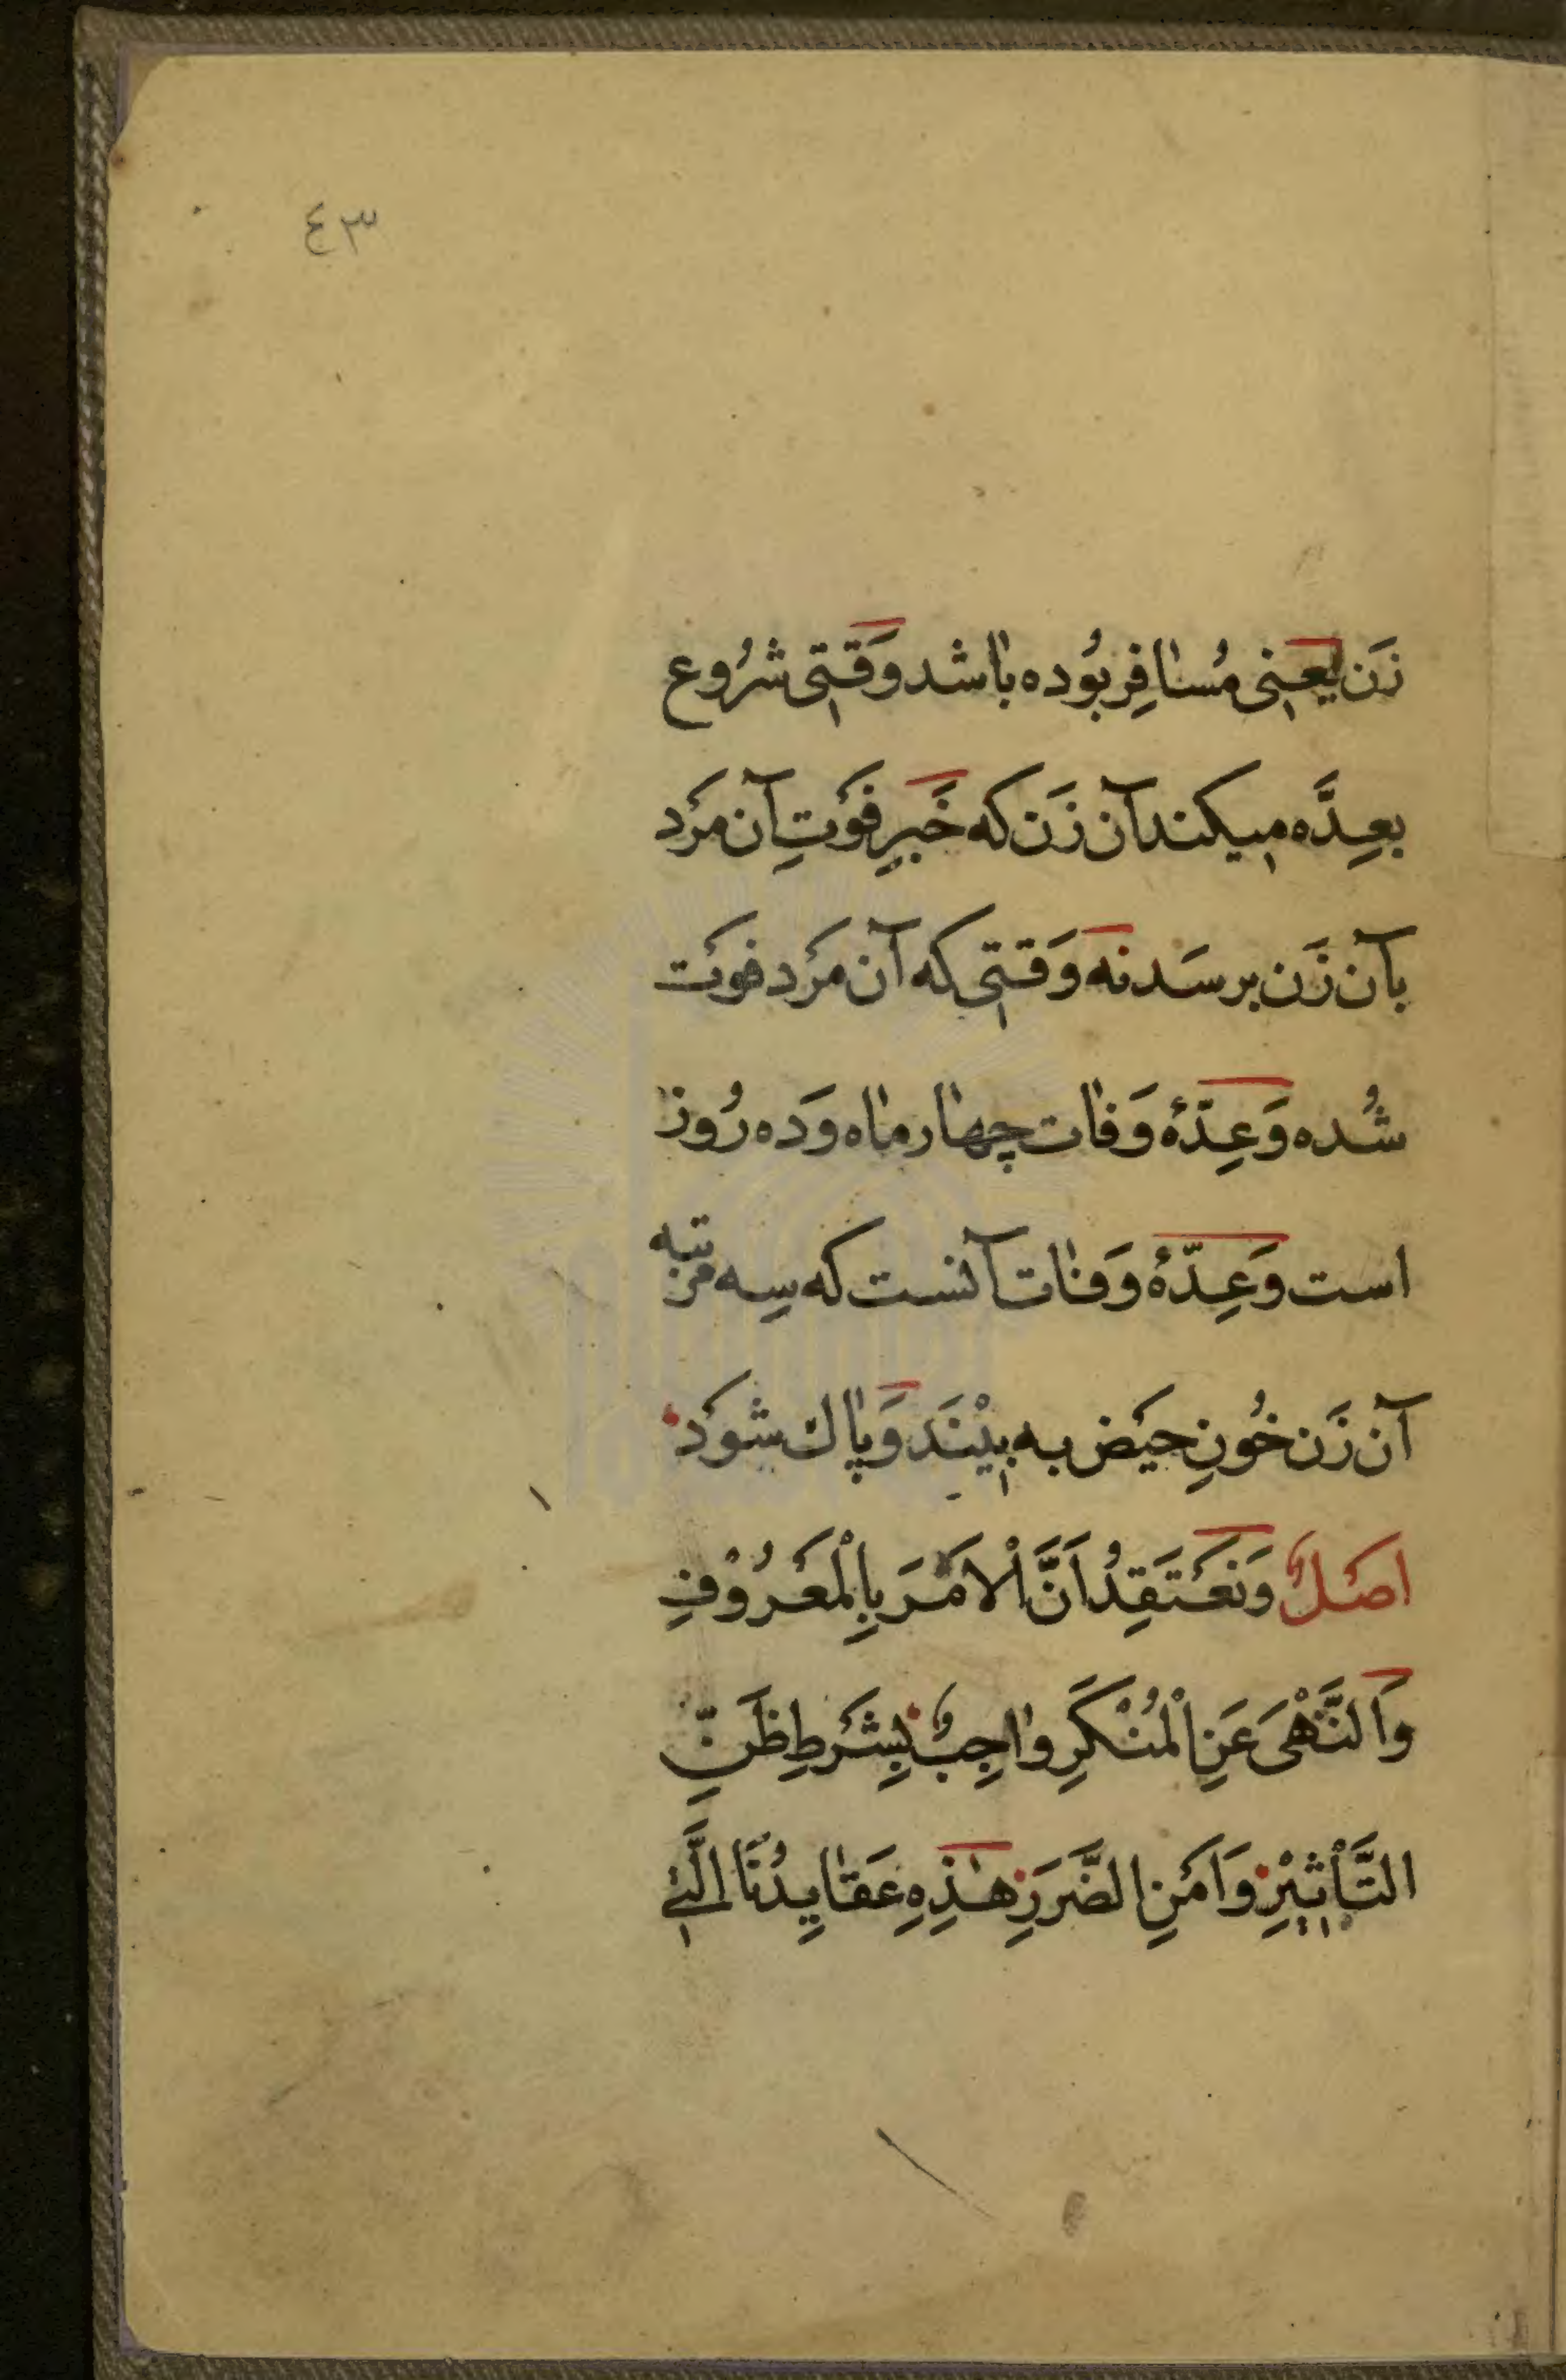 ٤٣
زَن یعنِی مُسافِر بُوده باشد وَقتِی شرُوع
بعِدَّه میکند آن زَن که خَبرِ فَوْتِ آن مَرْد
بآن زَن برسَد نه وَقتِی که آن مَرْد فوْت
شُده وَعِدّهٔ وَفات چهار ماه وَده رُوز
است وَعِدّهٔ وَفات آنست که سِه مرتبه
آن زَن خُونِ حیْض به بیْنَد وَپاك شوَد
اصْلٌ وَنَعْتَقِدُ اَنَّ الْاَمْرَ بِالْمَعْرُوْفِ
وَالنَّهْیَ عَنِ الْمُنْکَرِ واجِبٌ بِشَرْطِ ظَنِّ
التَّأثِیْرِ وَاَمْنِ الضَّرَرِ هٰذِهِ عَقایِدُنَا الَّتِیْ